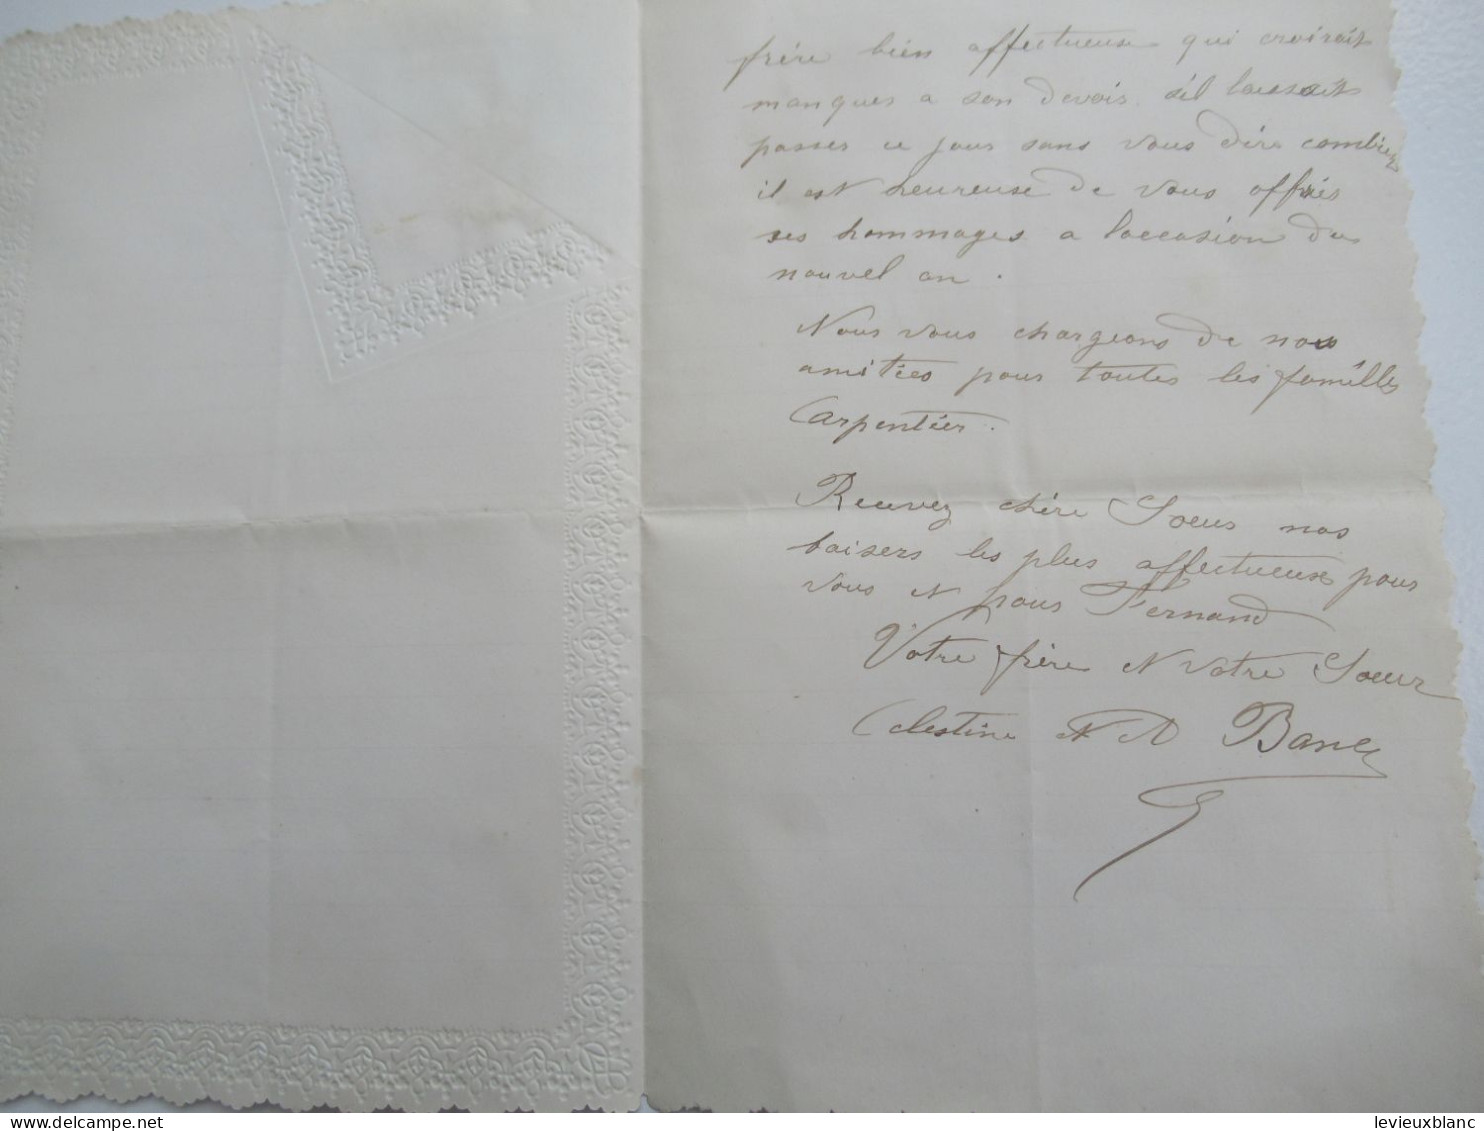 frère bien affectueuse qui croirait
manquer a son devoir s'il laissait
passer ce jour sans vous dire combien
il est heureuse de vous offrir
ses hommages a l'occasion du
nouvel an.
Nous vous chargeons de nos
amitiés pour toutes les familles
Carpentier.
Recevez chère Soeur nos
baisers les plus affectueux pour
vous et pour Fernand
Votre frère et votre Soeur
Celestine et A
levieuxblanc